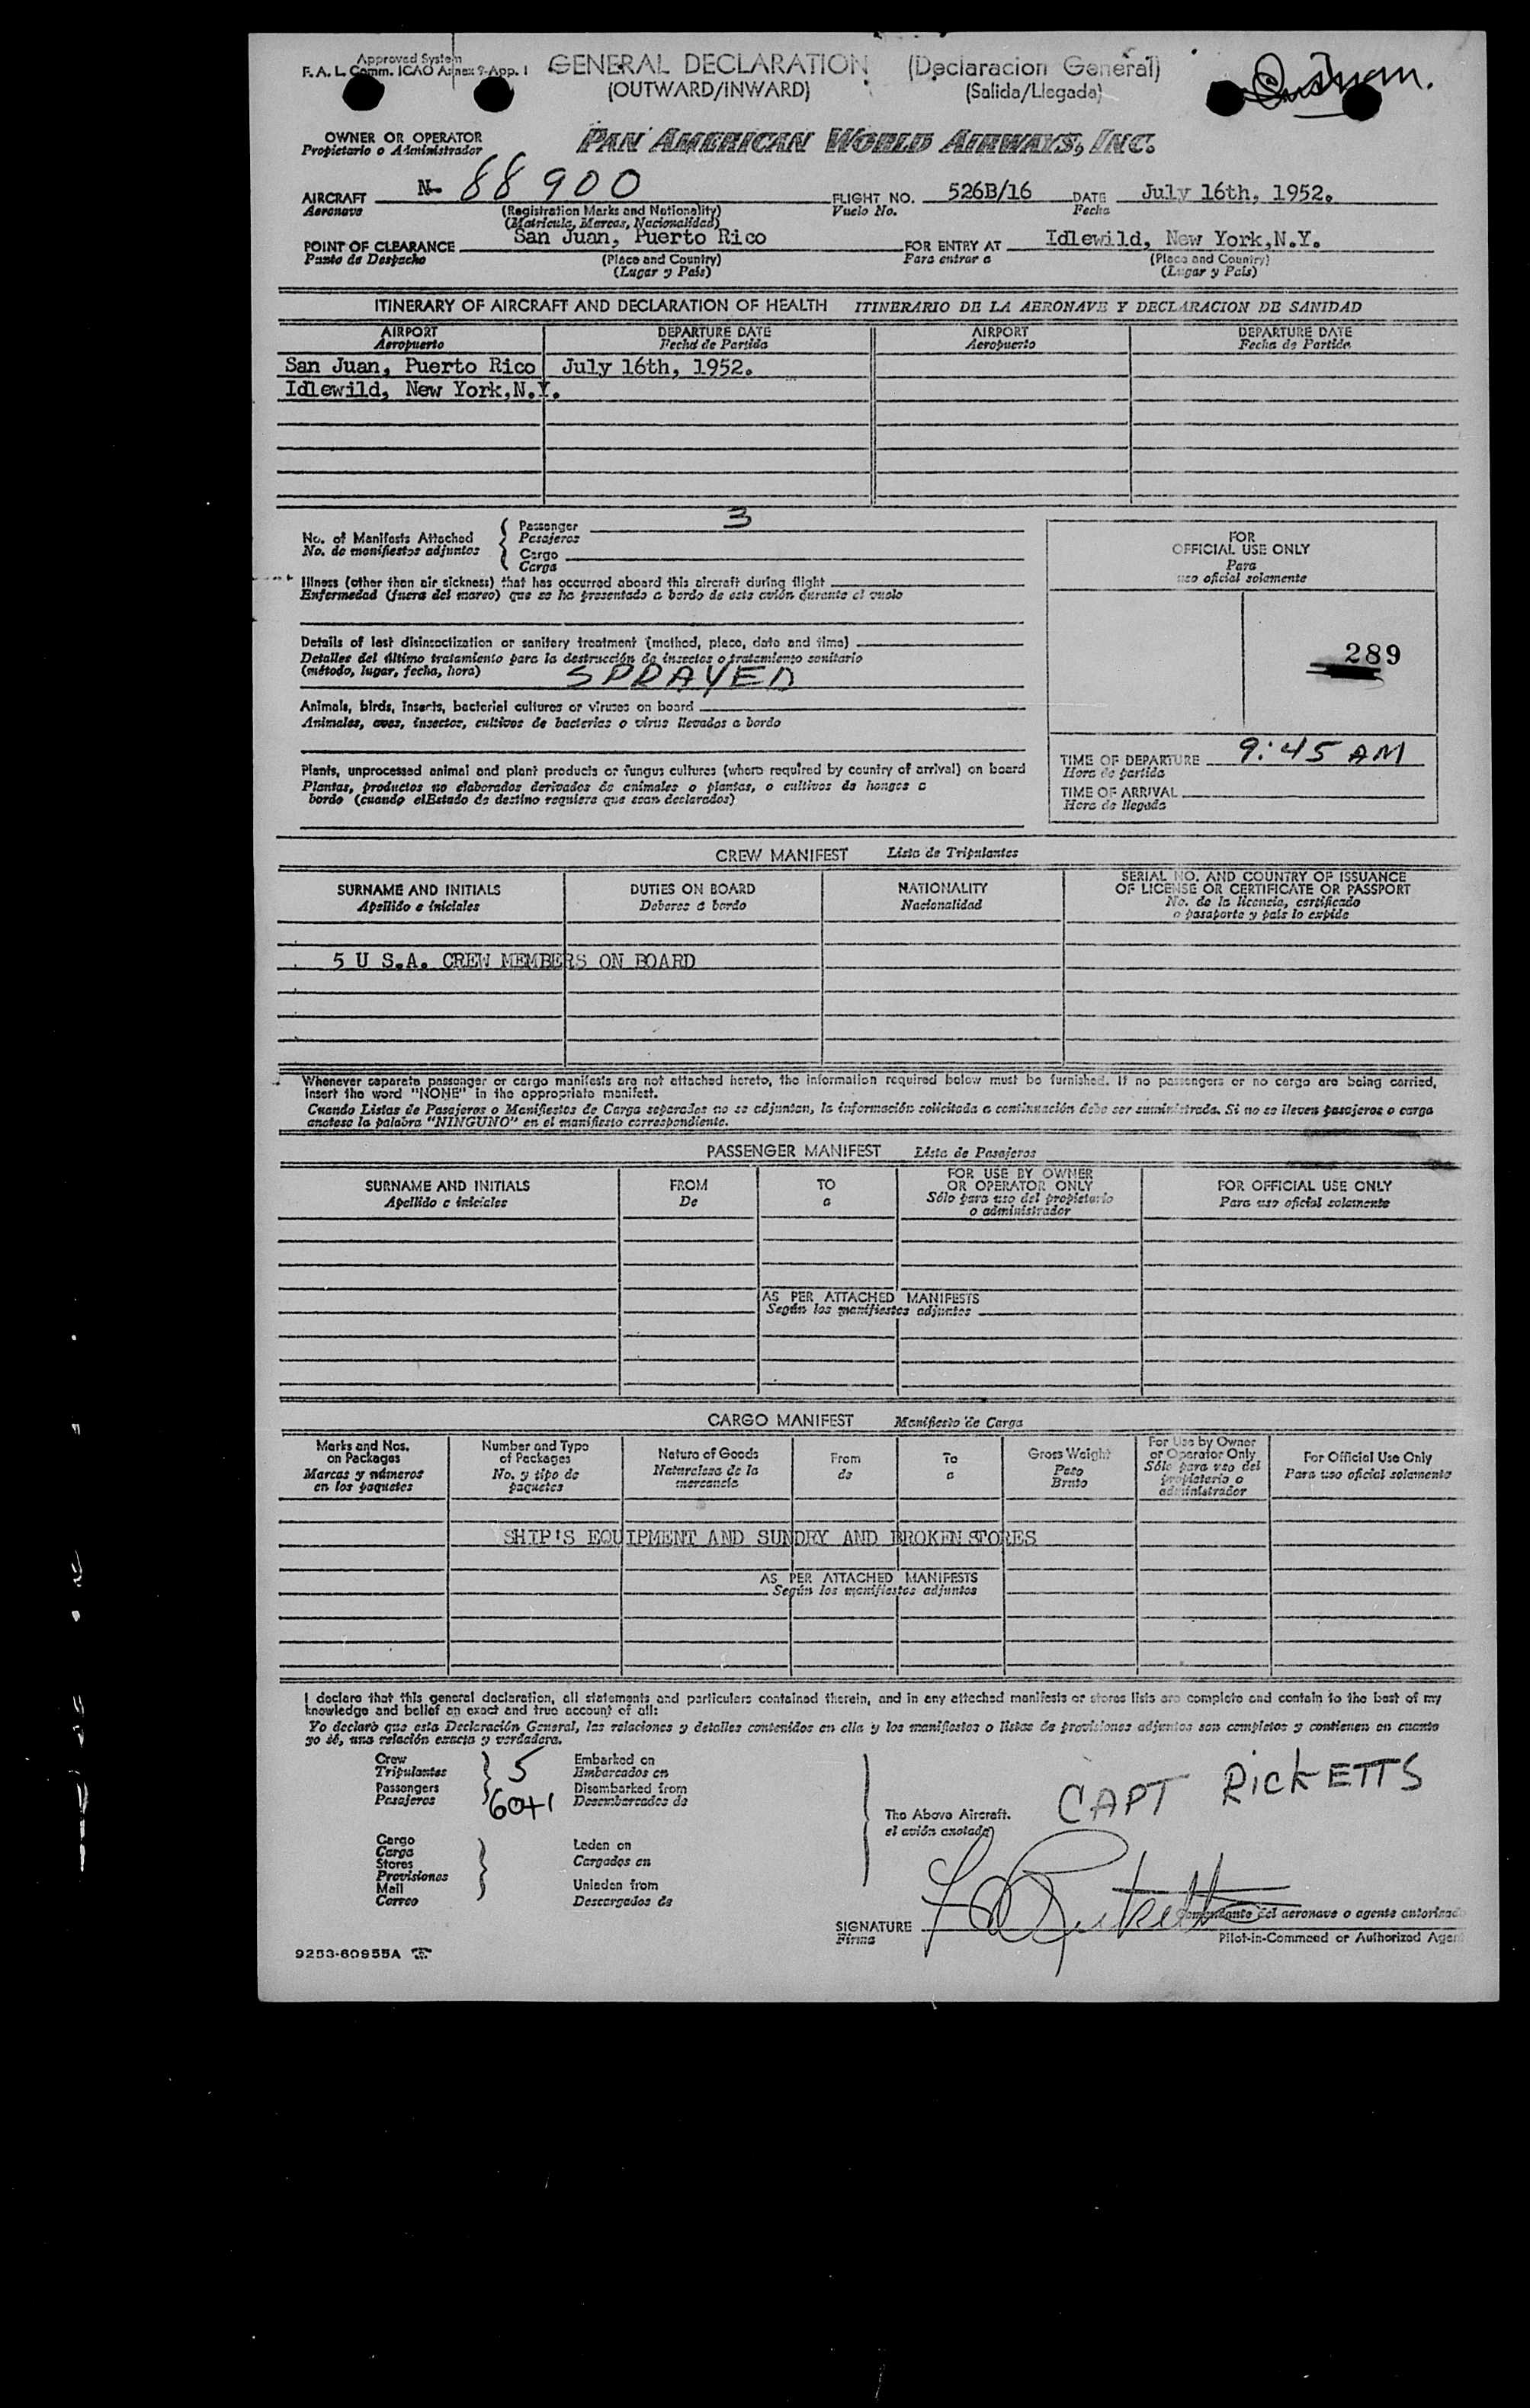 Approved System
F. A. L. Comm. ICAO Annex 9-App. 1
GENERAL DECLARATION (Declaracion General)
(OUTWARD/INWARD) (Salida/Llegada)
OWNER OR OPERATOR
Propietario o Administrador
PAN AMERICAN WORLD AIRWAYS, INC.
AIRCRAFT N- 88900 FLIGHT NO. 526B/16 DATE July 16th, 1952.
Aeronave (Registration Marks and Nationality) Vuelo No. Fecha
(Matricula, Marcas, Nacionalidad)
POINT OF CLEARANCE San Juan, Puerto Rico FOR ENTRY AT Idlewild, New York,N.Y.
Punto de Despacho (Place and Country) Para entrar a (Place and Country)
(Lugar y País) (Lugar y País)
ITINERARY OF AIRCRAFT AND DECLARATION OF HEALTH ITINERARIO DE LA AERONAVE Y DECLARACION DE SANIDAD
AIRPORT DEPARTURE DATE AIRPORT DEPARTURE DATE
Aeropuerto Fecha de Partida Aeropuerto Fecha de Partida
San Juan, Puerto Rico July 16th, 1952.
Idlewild, New York,N.Y.
No. of Manifests Attached
No. de manifiestos adjuntos
Passenger 3
Pasajeros
Cargo
Carga
Illness (other than air sickness) that has occurred aboard this aircraft during flight
Enfermedad (fuera del mareo) que se ha presentado a bordo de este avión durante el vuelo
Details of last disinsectization or sanitary treatment (method, place, date and time)
Detalles del último tratamiento para la destrucción de insectos o tratamiento sanitario
(método, lugar, fecha, hora) SPRAYED
Animals, birds, insects, bacterial cultures or viruses on board
Animales, aves, insectos, cultivos de bacterias o virus llevados a bordo
Plants, unprocessed animal and plant products or fungus cultures (where required by country of arrival) on board
Plantas, productos no elaborados derivados de animales o plantas, o cultivos de hongos a
bordo (cuando elEstado de destino requiera que sean declarados)
FOR
OFFICIAL USE ONLY
Para
uso oficial solamente
289
TIME OF DEPARTURE 9:45 AM
Hora de partida
TIME OF ARRIVAL
Hora de llegada
CREW MANIFEST Lista de Tripulantes
SURNAME AND INITIALS DUTIES ON BOARD NATIONALITY SERIAL NO. AND COUNTRY OF ISSUANCE
OF LICENSE OR CERTIFICATE OR PASSPORT
Apellido e iniciales Deberes a bordo Nacionalidad No. de la licencia, certificado
o pasaporte y país lo expide
5 U S.A. CREW MEMBERS ON BOARD
Whenever separate passenger or cargo manifests are not attached hereto, the information required below must be furnished. If no passengers or no cargo are being carried,
insert the word "NONE" in the appropriate manifest.
Cuando Listas de Pasajeros o Manifiestos de Carga separados no se adjuntan, la información solicitada a continuación debe ser suministrada. Si no se lleven pasajeros o carga
anotese la palabra "NINGUNO" en el manifiesto correspondiente.
PASSENGER MANIFEST Lista de Pasajeros
SURNAME AND INITIALS FROM TO FOR USE BY OWNER
OR OPERATOR ONLY FOR OFFICIAL USE ONLY
Apellido e iniciales De a Sólo para uso del propietario
o administrador Para uso oficial solamente
AS PER ATTACHED MANIFESTS
Según los manifiestos adjuntos
CARGO MANIFEST Manifiesto de Carga
Marks and Nos.
on Packages
Marcas y números
en los paquetes
Number and Type
of Packages
No. y tipo de
paquetes
Nature of Goods
Naturaleza de la
mercancía
From
de
To
a
Gross Weight
Peso
Bruto
For Use by Owner
or Operator Only
Sólo para uso del
propietario o
administrador
For Official Use Only
Para uso oficial solamente
SHIP'S EQUIPMENT AND SUNDRY AND BROKEN STORES
AS PER ATTACHED MANIFESTS
Según los manifiestos adjuntos
I declare that this general declaration, all statements and particulars contained therein, and in any attached manifests or stores lists are complete and contain to the best of my
knowledge and belief an exact and true account of all:
Yo declaro que esta Declaración General, las relaciones y detalles contenidos en ella y los manifiestos o listas de provisiones adjuntos son completos y contienen en cuanto
yo sé, una relación exacta y verdadera.
Crew
Tripulantes 5
Passengers
Pasajeros 60+1
Embarked on
Embarcados en
Disembarked from
Desembarcados de
Cargo
Carga
Stores
Provisiones
Mail
Correo
Laden on
Cargados en
Unladen from
Descargados de
The Above Aircraft.
el avión anotado
CAPT RICKETTS
SIGNATURE
Firma
Comandante del aeronave o agente autorizad
Pilot-in-Command or Authorized Agen
9253-60955A